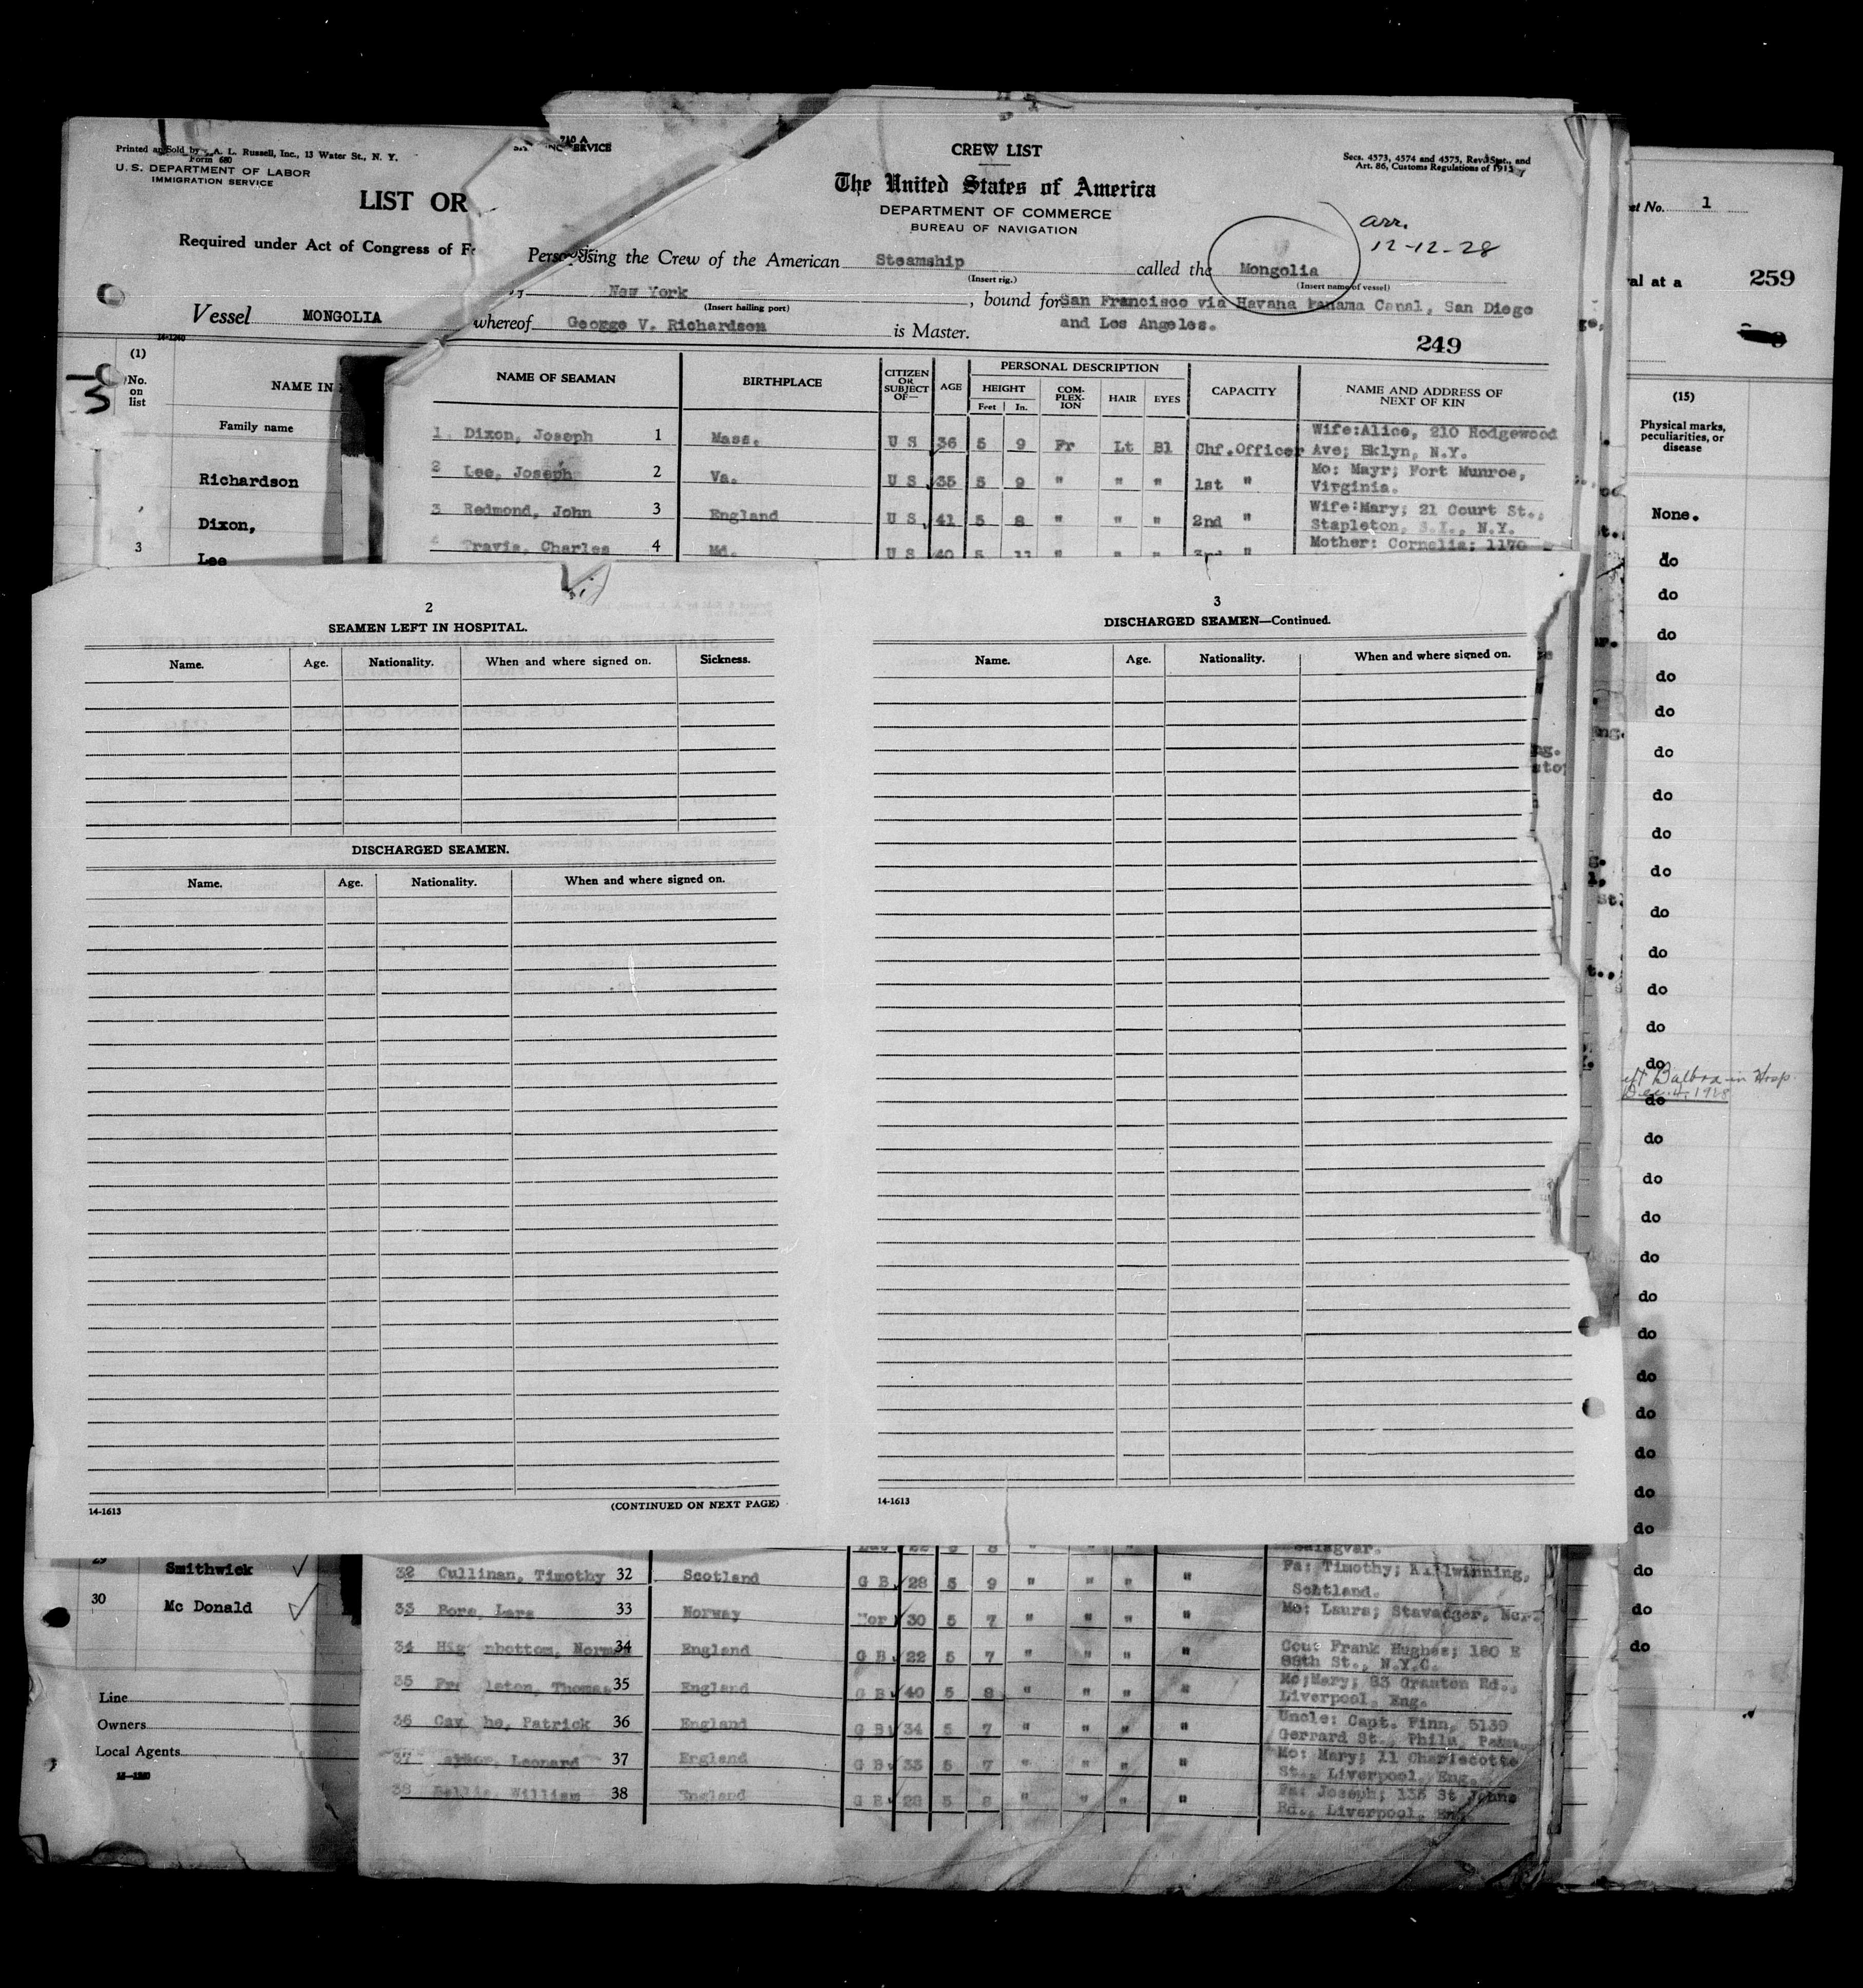 Printed and Sold by A. L. Russell, Inc., 13 Water St., N. Y.
Form 680
U. S. DEPARTMENT OF LABOR
IMMIGRATION SERVICE
LIST OR
Required under Act of Congress of
Vessel MONGOLIA
14-1240
(1)
No. on list
NAME IN
Family name
Richardson
Dixon,
3 Lee
710 A
SERVICE
CREW LIST
The United States of America
DEPARTMENT OF COMMERCE
BUREAU OF NAVIGATION
Secs. 4573, 4574 and 4575, Rev. Stat., and
Art. 86, Customs Regulations of 1915
arr.
12-12-28
the Crew of the American Steamship called the Mongolia
(Insert rig.) (Insert name of vessel)
New York, bound for San Francisco via Havana Panama Canal, San Diego
(Insert hailing port)
and Los Angeles.
whereof George V. Richardson is Master.
249
NAME OF SEAMAN BIRTHPLACE CITIZEN OR SUBJECT OF— AGE PERSONAL DESCRIPTION CAPACITY NAME AND ADDRESS OF NEXT OF KIN
HEIGHT COM-PLEX-ION HAIR EYES
Feet In.
1 Dixon, Joseph 1 Mass. U S 36 5 9 Fr Lt Bl Chf.Officer Wife:Alice, 210 Hodgewood
Ave; Bklyn, N.Y.
2 Lee, Joseph 2 Va. U S 35 5 9 " " " 1st " Mo: Mayr; Fort Munroe,
Virginia.
3 Redmond, John 3 England U S 41 5 8 " " " 2nd " Wife:Mary; 21 Court St.,
Stapleton, S.I., N.Y.
4 Travis, Charles 4 Md. U S 40 5 11 " " " 3rd " Mother: Cornelia; 1170
1
259
(15)
Physical marks, peculiarities, or disease
None.
do
do
do
do
do
do
do
do
do
do
do
do
do
do
Balboa in Hosp.
Dec. 4, 1928
do
do
do
do
do
do
do
do
do
do
do
do
do
do
do
2
SEAMEN LEFT IN HOSPITAL.
Name. Age. Nationality. When and where signed on. Sickness.
DISCHARGED SEAMEN.
Name. Age. Nationality. When and where signed on.
14-1613
(CONTINUED ON NEXT PAGE)
3
DISCHARGED SEAMEN—Continued.
Name. Age. Nationality. When and where signed on.
14-1613
29 Smithwick
30 Mc Donald
Line
Owners
Local Agents
32 Cullinan, Timothy 32 Scotland G B 28 5 9 " " " " Fa: Timothy;
33 33 Norway Nor 30 5 7 " " " " Mo: Laura;
34 34 England G B 22 5 7 " " " " Frank Hughes; 180 E
88th St., N.Y.C.
35 Thomas 35 England G B 40 5 8 " " " " Mo;Mary; 83 Granton Rd.,
Liverpool, Eng.
36 Patrick 36 England G B 34 5 7 " " " " Uncle: Capt. Finn, 5139
Gerrard St., Phila,
37 Leonard 37 England G B 33 5 7 " " " " Mo: Mary; 11
St., Liverpool, Eng.
38 William 38 England G B 28 5 8 " " " " Fa: Joseph; 135 St Johns
Rd., Liverpool, Eng.